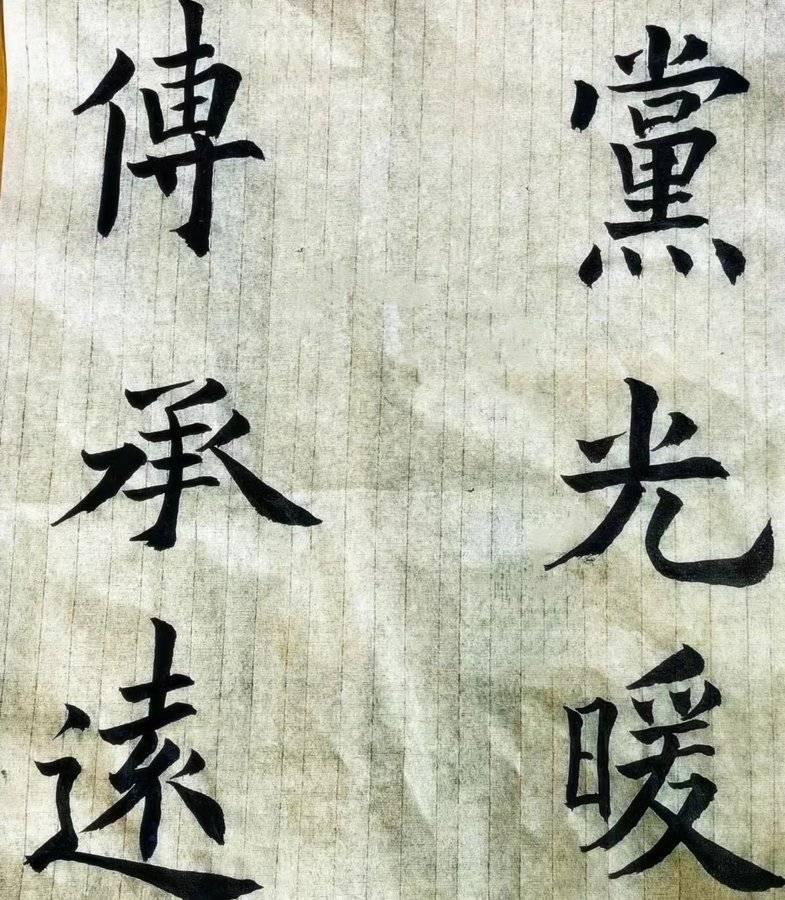 黨光暖
傳承遠